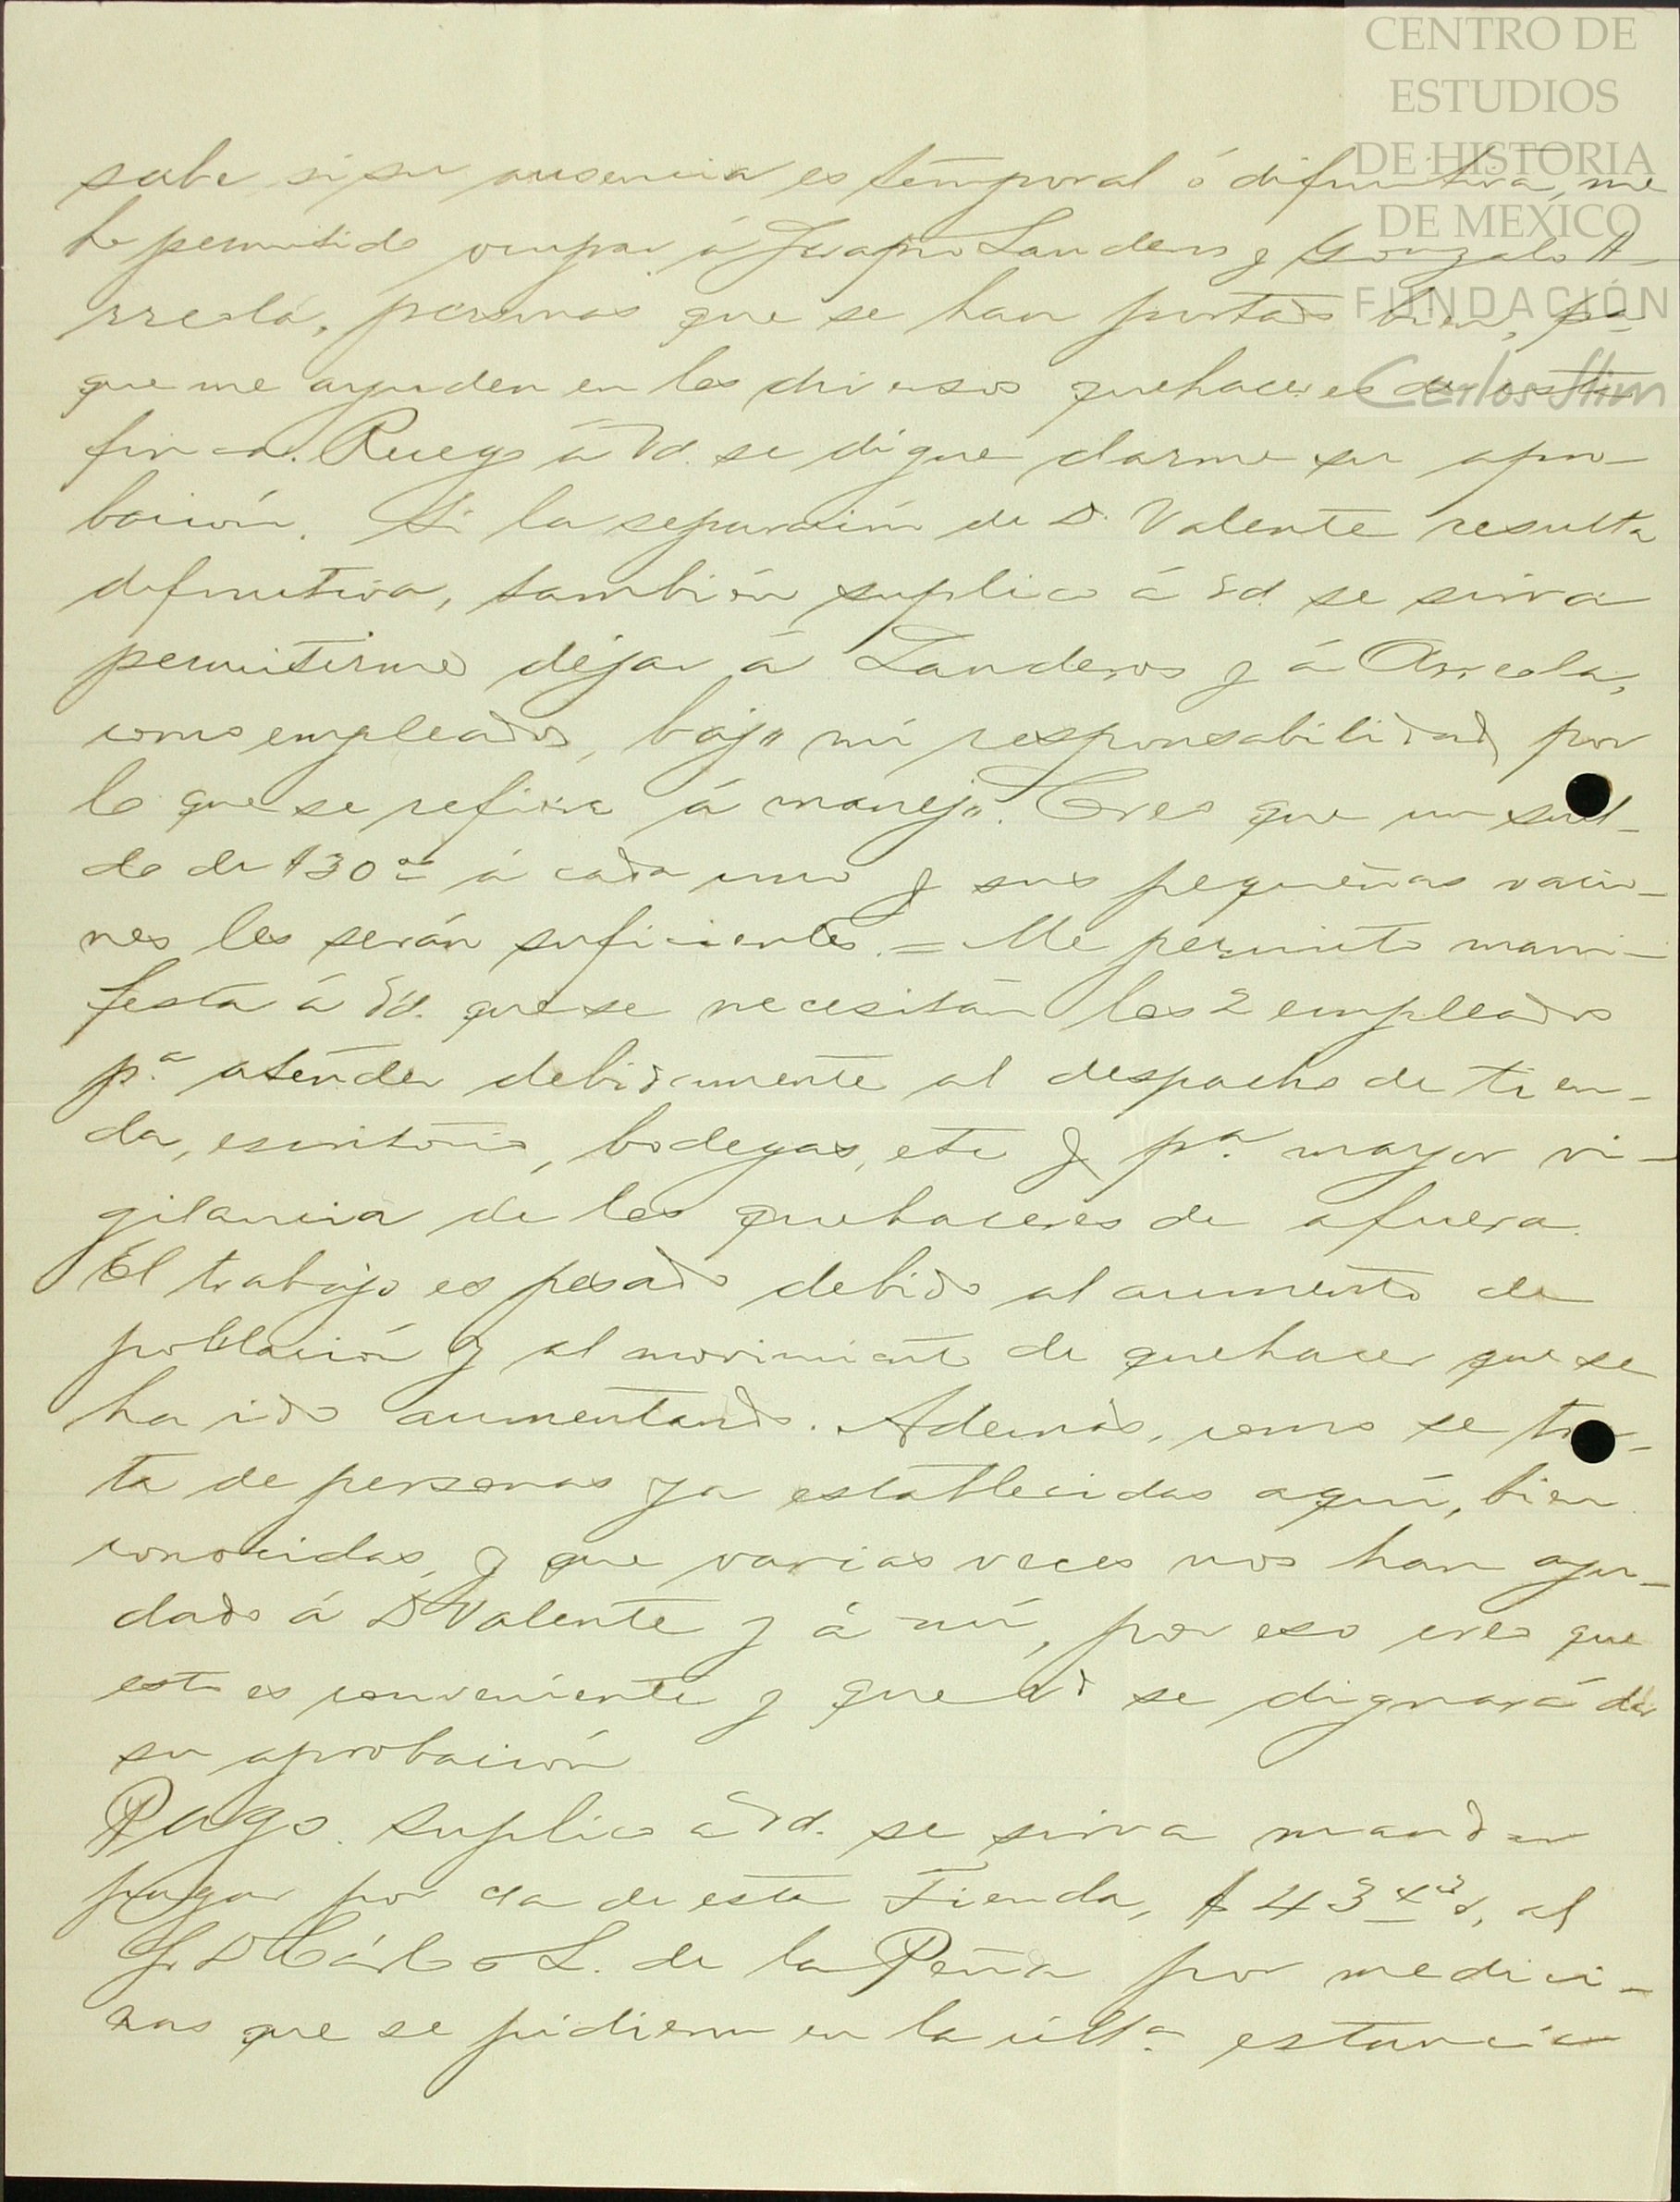 CENTRO DE
ESTUDIOS
DE HISTORIA
DE MÉXICO
FUNDACIÓN
Carlos Slim
sabe si su ausencia es temporal ó difinitiva, me
he permitido ocupar á Serapio Landeros y Gonzalo A-
rreola, personas que se han portado bien, pa
que me ayuden en los diversos quehaceres de esta
finca. Ruego á Vd. se digne darme su apro-
bación. Si la separación de D. Valente resulta
difinitiva, también suplico á Vd. se sirva
permitirme dejar á Landeros y á Arreola,
como empleados, bajo mi responsabilidad por
lo que se refiera á manejo. Creo que un suel-
do de $30 00 á cada uno y sus pequeñas racio-
nes les serán suficientes. = Me permito mani-
festar á Vd. que se necesitan los 2 empleados
p.a atender debidamente al despacho de tien-
da, escritorio, bodegas, etc y p.a mayor vi-
gilancia de los quehaceres de afuera.
El trabajo es pesado debido al aumento de
población y al movimiento de quehacer que se
ha ido aumentando. Además, como se tra-
ta de personas ya establecidas aquí, bien
conocidas, y que varias veces nos han ayu-
dado á D Valente y á mí, por eso creo que
esto es conveniente y que Vd se dignará dar
su aprobación
Pago. Suplico á Vd. se sirva mandar
pagar por cta de esta Tienda, $43 43, al
Sr D Cárlos L. de la Peña por medici-
nas que se pidieron en la últa estancia